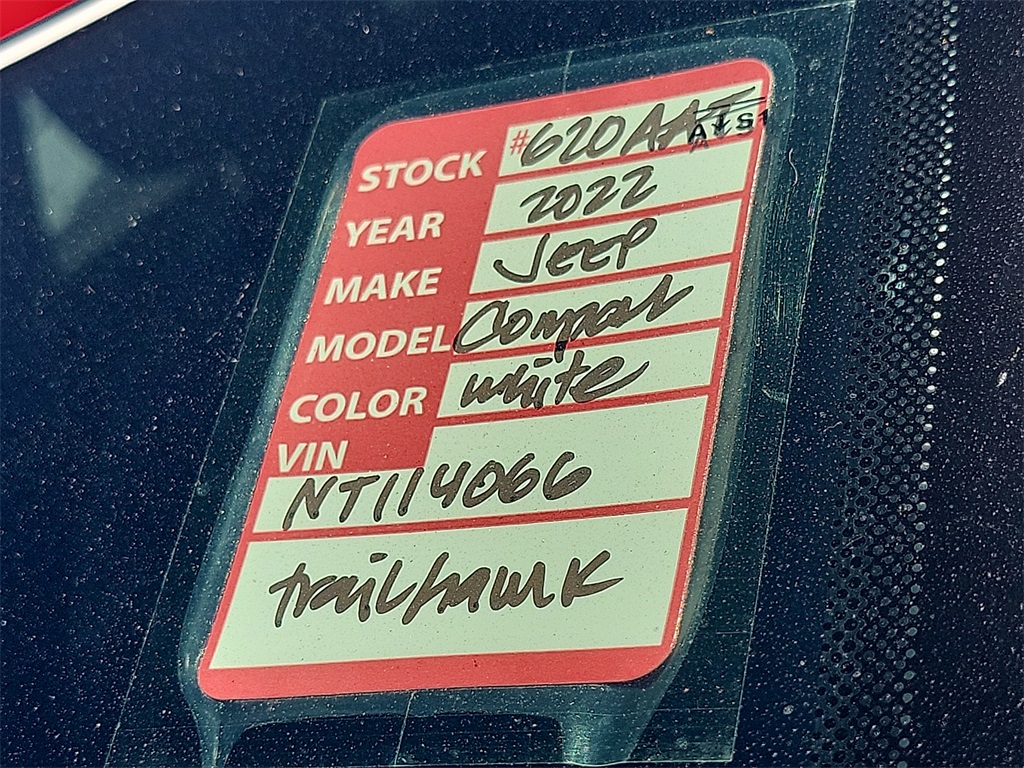 STOCK #620AA
YEAR 2022
MAKE Jeep
MODEL Compass
COLOR white
VIN
NT114066
trailhawk